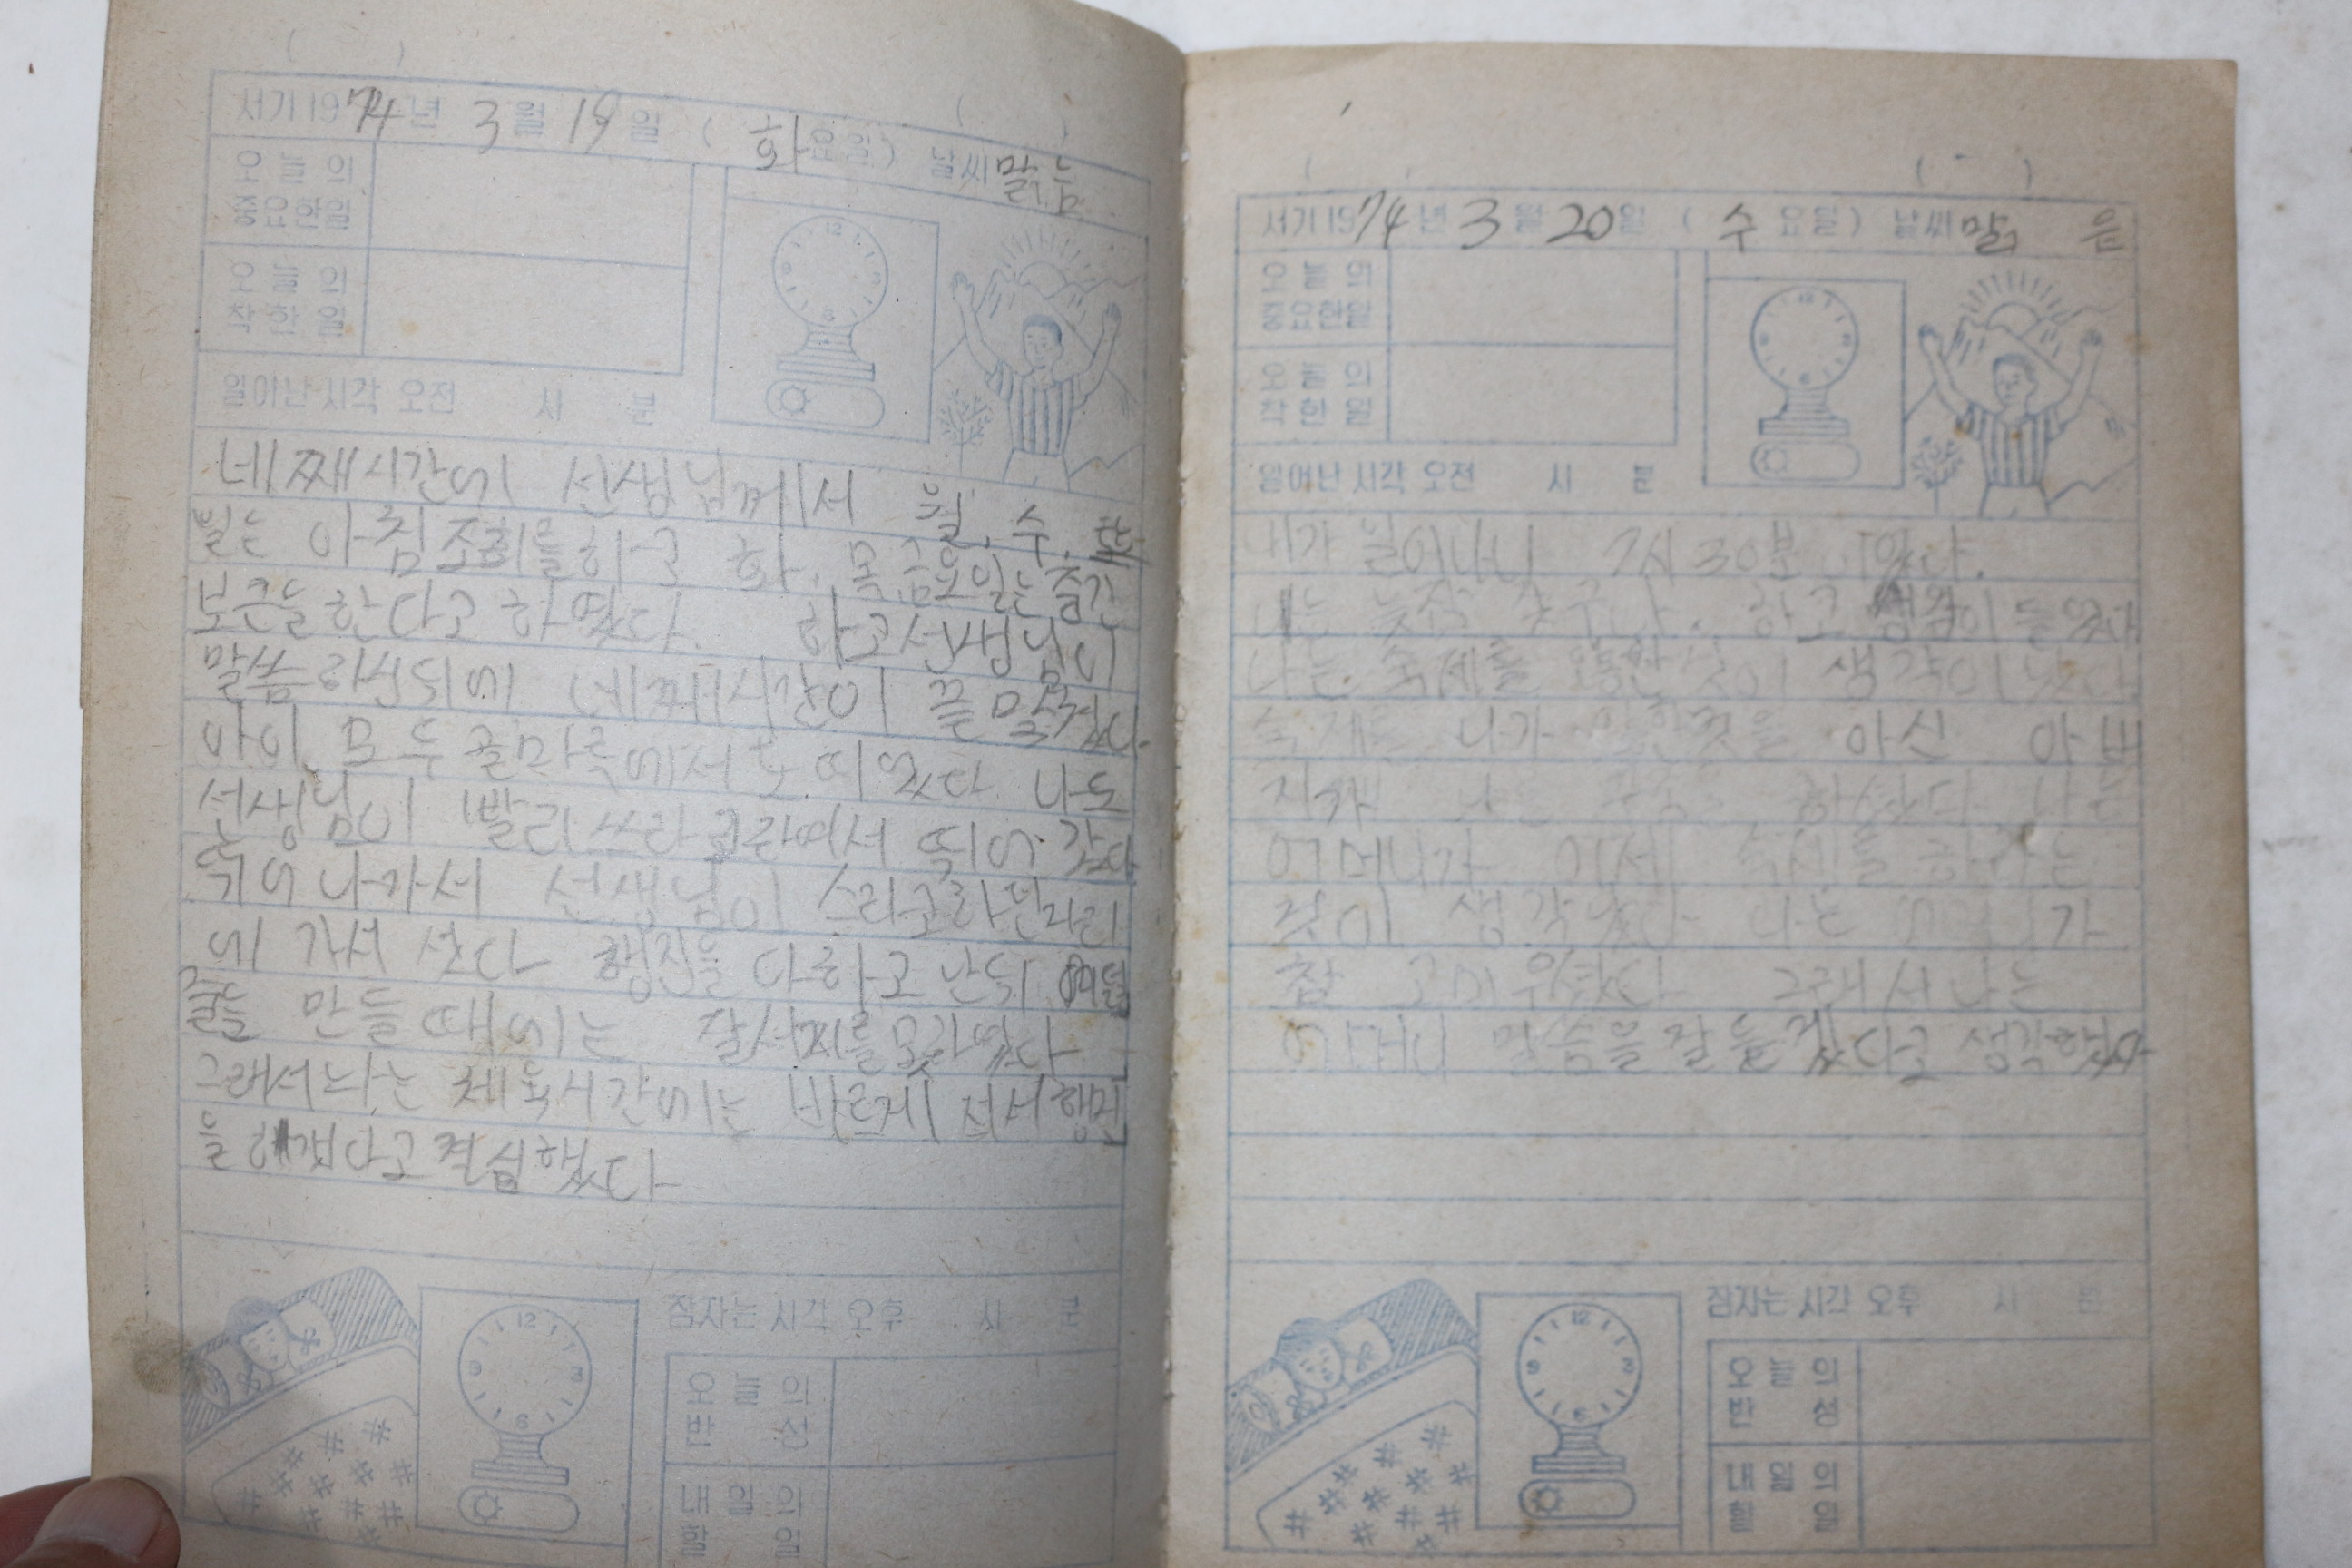 서기 1974년 3월 19일 (화요일) 날씨 맑음
오늘의
중요한일
오늘의
착한일
일어난 시각 오전 시 분
네째시간에 선생님께서 월, 수,
일는 아침조회를하고 화, 목 금요일는 중간
보근을 한다고 하였다. 하고 선생님이
말씀 네째시간이 끝
아이 모두 에서 나도
선생님이 빨리 쓰라 띠어 갔다
띠어 나가서 선생님이 스라고라던자리
에 가서 섯다 행진을 다하고 난뒤
만들때에는 잘서지를못하였다
그래서 나는 체육시간에는 바르게 서서 행진
을 겠다고 결심했다
잠자는 시각 오후 시 분
오늘의
반성
내일의
할일
서기 1974년 3월 20일 (수요일) 날씨 맑음
오늘의
중요한일
오늘의
착한일
일어난 시각 오전 시 분
내가 일어나니 7시 30분 이었다.
나는 늦잠 잣구나. 하고 생각이 들었다
나는 숙제를 안한것이 생각이났다
숙제를 나가 안한것을 아신 아버
지께 나는 하셨다 나는
어머니가 어제 숙제를 하라는
것이 생각났다 나는 어머니가
참 고마우셨다 그래서 나는
어머니 말씀을 잘 듣겠다고 생각했다
잠자는 시각 오후 시 분
오늘의
반성
내일의
할일